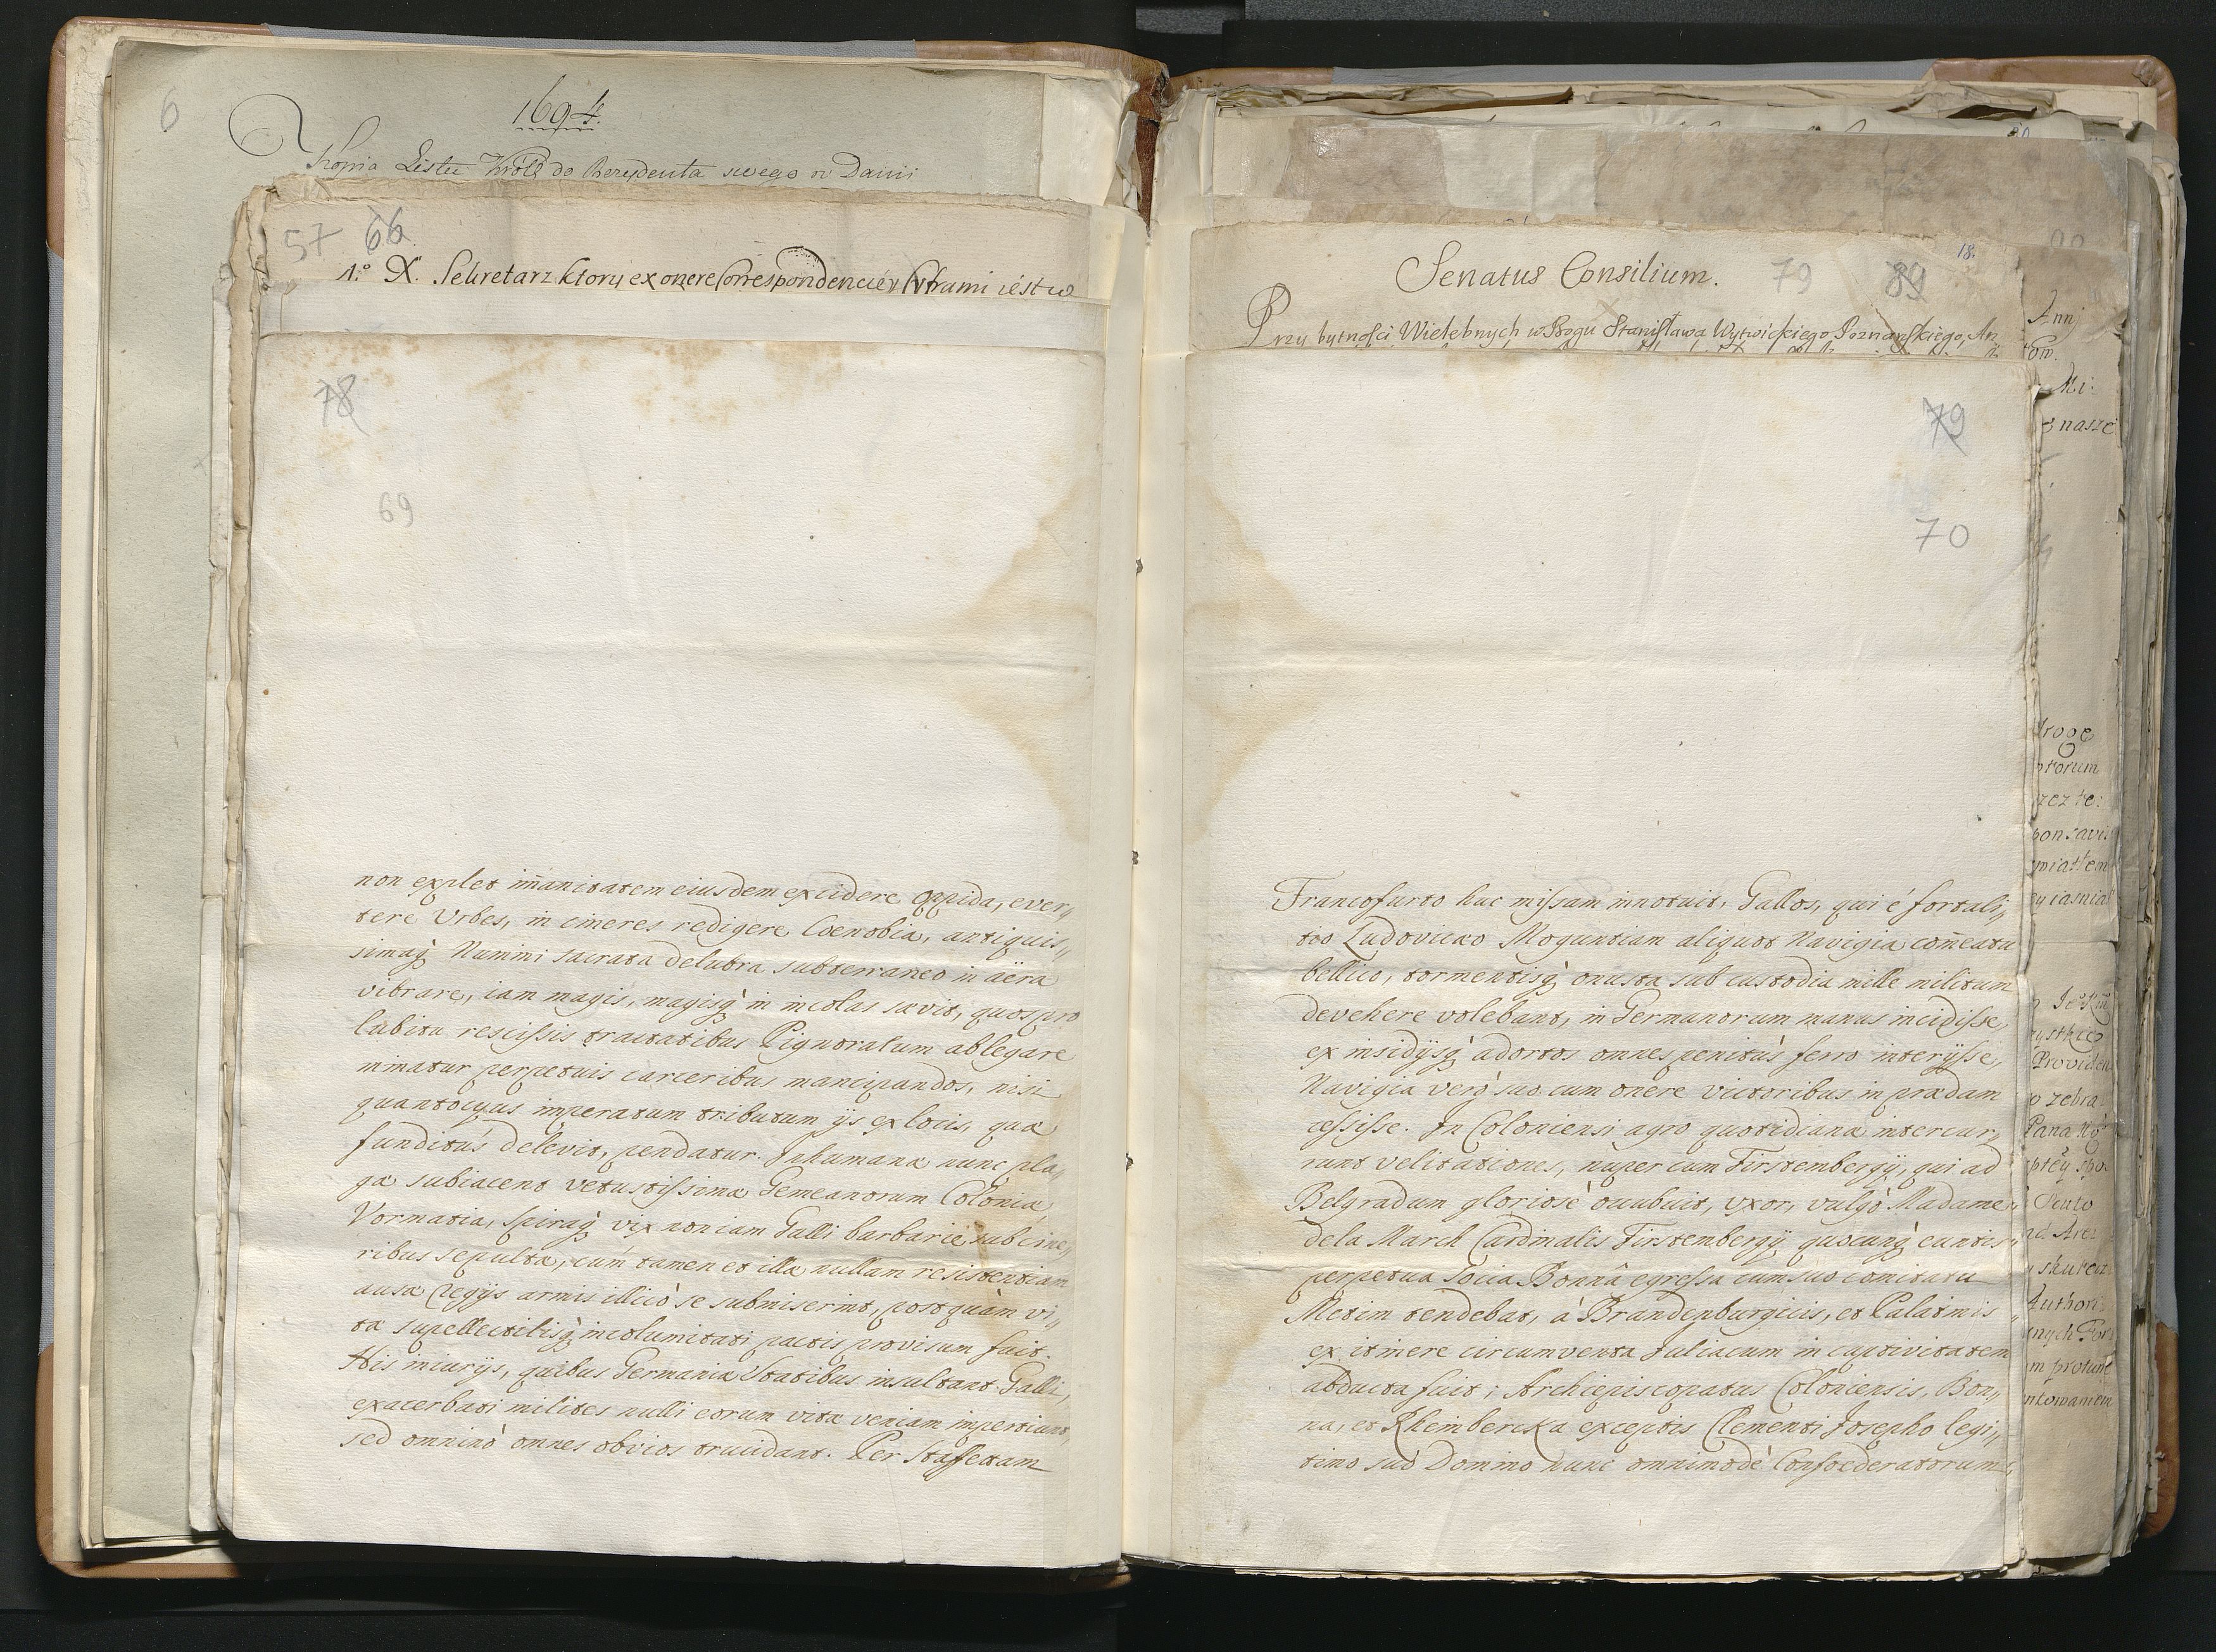 6
1694.
Kopia Listu Króla do Rezydenta swego w Danii
57 66
1.º X. Sekretarz ktory ex onere Correspondenciey Cyframi iest w
78
69
non explet im̃anitatem eiusdem excidere oppida, ever„
tere Vrbes, in cineres redigere Coenobia, antiquis„
simaq̀ Numini sacrata delubra subterraneo in aëra
vibrare, iam magis, magisq̀ in incolas sævit, quos pro
lubitu rescissis tractatibus Pignoratum ablegare
minatur perpetuis carceribus mancipandos, nisi
quantocyus imperatum tributum ijs ex locis, quæ
funditùs delevit, pendatur. Inhumana nunc pla„
ga subiacent vetustissima Gemeanorum Colonia,
Vormatia, Spiraq̀ vix non iam Galli barbarie sub cine„
ribus sepultæ, cùm tamen et illæ nullam resistentiam
ausæ Regijs armis illicò se submiserint, postquàm vi„
tæ supellectilisq̀ incolumitati pactis provisum fuit.
His iniurijs, quibus Germaniæ Statibus insultant Galli,
exacerbati milites nulli eorum vitæ veniam impertiunt
sed omninò omnes obvios trucidant. Per Staffetam
Senatus Consilium. 79 89 18.
Przy bytności Wielebnych w Bogu Stanisława Wytwickiego Poznanskiego, An
79
70
Francofurto huc missam innotuit, Gallos, qui è fortali„
tio Ludoviceo Moguntiam aliquot Navigia com̃eatu
bellico, tormentisq̀ onusta sub custodia mille militum
devehere volebant, in Germanorum manus incidisse,
ex insidijsq̀ adortos omnes penitùs ferro interijsse,
Navigia verò suo cum onere victoribus in prædam
cessisse. In Coloniensi agro quotidianæ intercur„
runt velitationes, nuper cum Firstembergij, qui ad
Belgradum gloriosè occubuit, vxor, vulgò Madame
de la March Cardinalis Firstembergij quocunq̀ euntis
perpetua Socia Bonnâ egressa cum suo comitatu
Metim tendebat, à Brandenburgicis, et Palatinis
ex itinere circumventa Juliacum in captivitatem
abducta fuit; Archiepiscopatus Coloniensis, Bon„
na, et Rhembercka exceptis Clementi Josepho legi„
timo suo Domino nunc omnimodè Confœderatorum
Annj
Mi:
nasze